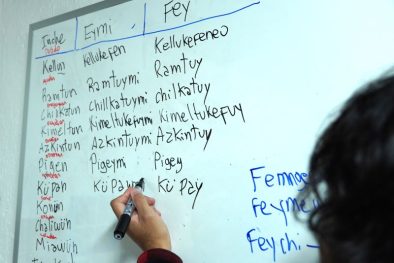 Inche Eymi Fey
Kellun Kellukefen Kellukefeneo
Ramtun Ramtuymi Ramtuy
Chilkatun Chillkatuymi Chilkatuy
Kimeltun Kimeltukefuymi Kimeltukefuy
Azkintun Azkintuymi Azkintuy
Pigen Pigeymi Pigey
Küpan Küpaym Küpay
Konün
Chaliwün
Miawün
Feymew
Feychi